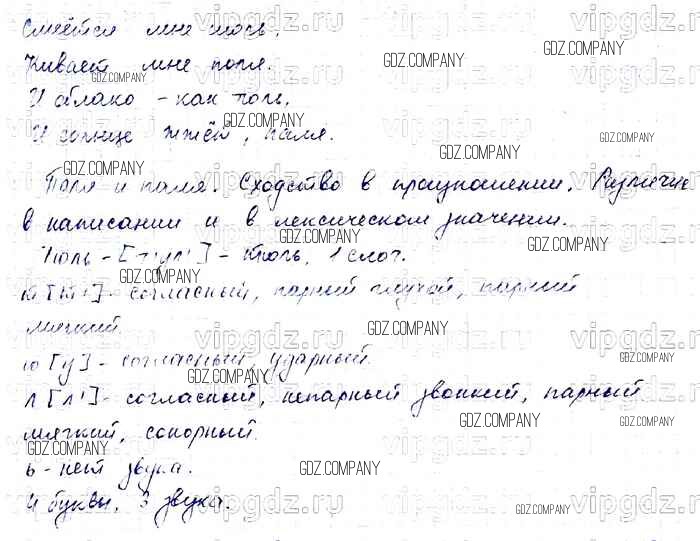 Смеётся мне июль,
Кивает мне поля.
И облако – как тюль,
И солнце жжёт, паля.
Поля и паля. Сходство в произношении. Различие
в написании и в лексическом значении.
Тюль – [т'ул'] – тюль, 1 слог.
[т'] – согласный, парный глухой, парный
мягкий.
ю [у] – согласный, ударный.
л [л'] – согласный, непарный звонкий, парный
мягкий, сонорный.
ь – нет звука.
4 буквы, 3 звука.
vipgdz.ru
GDZ.COMPANY